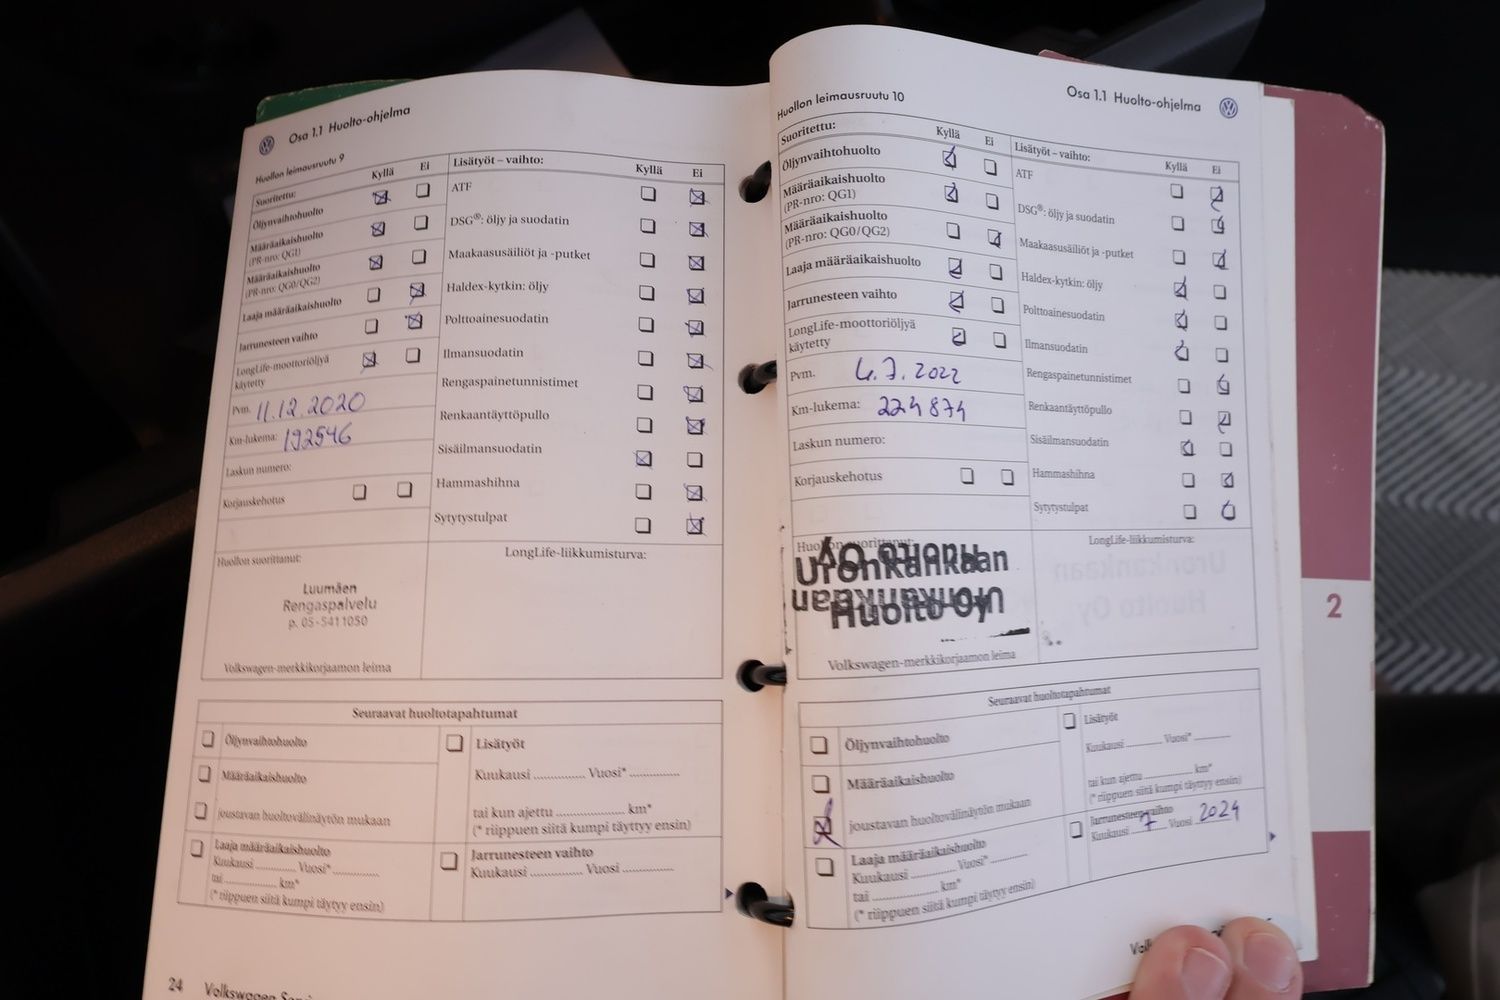 Osa 1.1 Huolto-ohjelma
Huollon leimausruutu 9
Suoritettu: Kyllä Ei
Öljynvaihtohuolto
Määräaikaishuolto
(PR-nro: QG1)
Määräaikaishuolto
(PR-nro: QG0/QG2)
Laaja määräaikaishuolto
Jarrunesteen vaihto
LongLife-moottoriöljyä
käytetty
Pvm. 11.12.2020
Km-lukema: 192546
Laskun numero:
Korjauskehotus
Lisätyöt – vaihto: Kyllä Ei
ATF
DSG®: öljy ja suodatin
Maakaasusäiliöt ja -putket
Haldex-kytkin: öljy
Polttoainesuodatin
Ilmansuodatin
Rengaspainetunnistimet
Renkaantäyttöpullo
Sisäilmansuodatin
Hammashihna
Sytytystulpat
Huollon suorittanut:
Luumäen
Rengaspalvelu
p. 05-5411050
Volkswagen-merkkikorjaamon leima
LongLife-liikkumisturva:
Seuraavat huoltotapahtumat
Öljynvaihtohuolto
Määräaikaishuolto
joustavan huoltovälinäytön mukaan
Laaja määräaikaishuolto
Kuukausi ............. Vuosi* .............
tai ............. km*
(* riippuen siitä kumpi täyttyy ensin)
Lisätyöt
Kuukausi ............. Vuosi* .............
tai kun ajettu ................. km*
(* riippuen siitä kumpi täyttyy ensin)
Jarrunesteen vaihto
Kuukausi ............. Vuosi .............
24
Volkswagen
Huollon leimausruutu 10
Osa 1.1 Huolto-ohjelma
Suoritettu: Kyllä Ei
Öljynvaihtohuolto
Määräaikaishuolto
(PR-nro: QG1)
Määräaikaishuolto
(PR-nro: QG0/QG2)
Laaja määräaikaishuolto
Jarrunesteen vaihto
LongLife-moottoriöljyä
käytetty
Pvm. 4.7.2022
Km-lukema: 224874
Laskun numero:
Korjauskehotus
Lisätyöt – vaihto: Kyllä Ei
ATF
DSG®: öljy ja suodatin
Maakaasusäiliöt ja -putket
Haldex-kytkin: öljy
Polttoainesuodatin
Ilmansuodatin
Rengaspainetunnistimet
Renkaantäyttöpullo
Sisäilmansuodatin
Hammashihna
Sytytystulpat
Huollon suorittanut:
Uronkankaan
Huolto Oy
Volkswagen-merkkikorjaamon leima
LongLife-liikkumisturva:
Seuraavat huoltotapahtumat
Öljynvaihtohuolto
Määräaikaishuolto
joustavan huoltovälinäytön mukaan
Laaja määräaikaishuolto
Kuukausi ............. Vuosi* .............
tai ............. km*
(* riippuen siitä kumpi täyttyy ensin)
Lisätyöt
Kuukausi ............. Vuosi* .............
tai kun ajettu ................. km*
(* riippuen siitä kumpi täyttyy ensin)
Jarrunesteen vaihto
Kuukausi 7 Vuosi 2024
2